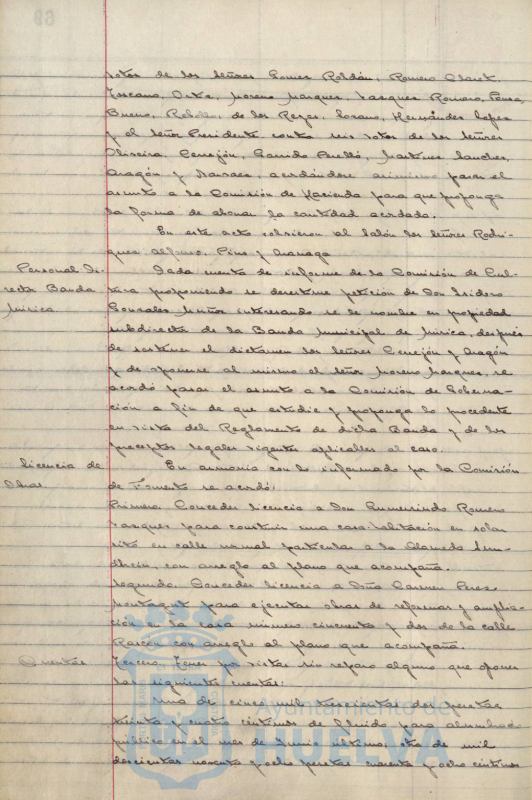 votos de los señores Gomez Roldán, Romero Claret,
Toscano, Ortiz, Moreno Marquez, Vazquez Romero, Ponce
Bueno, Rebollo, de los Reyes, Lozano, Hernández Lopez
y el señor Presidente contra seis votos de los señores
Oliveira, Cerrejón, Garrido Perelló, Martinez Sanchez,
Aragón y Narvaez, acordándose asimismo pasar el
asunto a la Comisión de Hacienda para que proponga
la forma de abonar la cantidad acordada.
En este acto volvieron al salón los señores Rodri-
guez Alfonso, Pino y
Personal Di-
rector Banda
Música
Dada cuenta de informe de la Comisión de Cul-
tura proponiendo se desestime petición de Don Isidoro
Gonzalez Muñoz interesando se le nombre en propiedad
subdirector de la Banda Municipal de Música, después
de sostener el dictamen los señores Cerrejón y Aragón
y de oponerse al mismo el señor Moreno Marquez, se
acordó pasar el asunto a la Comisión de Goberna-
ción a fin de que estudie y proponga lo procedente
en vista del Reglamento de dicha Banda y de los
preceptos legales vigentes aplicables al caso.
Licencia de
Obras
En armonia con lo informado por la Comisión
de Fomento se acordó:
Primero. Conceder licencia a Don Gumersindo Romero
Vazquez para construir una casa habitación en solar
sito en calle normal particular a la Alameda Sun-
dheim, con arreglo al plano que acompaña.
Segundo. Conceder licencia a Doña Carmen Perez
para ejecutar obras de reformas y amplia-
ción en la casa número cincuenta y dos de la calle
Rascón con arreglo al plano que acompaña.
Cuentas
Tercero. Tener por vistas sin reparo alguno que oponer
las siguientes cuentas:
Una de cinco mil trescientas dos pesetas
treinta y cuatro céntimos de fluido para alumbrado
público en el mes de Junio último; otra de mil
doscientas noventa y ocho pesetas cuarenta y ocho céntimos
Ayuntamiento de
HUELVA